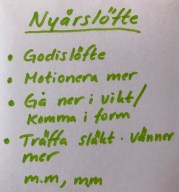 Nyårslöfte
• Godislöfte
• Motionera mer
• Gå ner i vikt/
komma i form
• Träffa släkt · vänner
mer
m.m, m.m